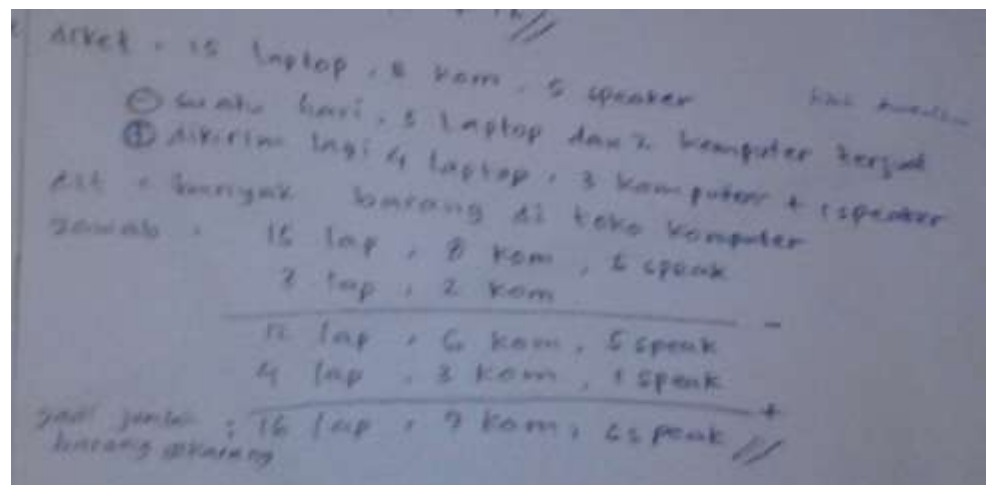 diket : 15 laptop, 8 kom, 5 speaker
⊖ suatu hari, 3 laptop dan 2 komputer terjual
⊕ dikirim lagi 4 laptop, 3 komputer + 1 speaker
dit : banyak barang di toko komputer
Jawab : 15 lap, 8 kom, 5 speak
3 lap, 2 kom
-
12 lap, 6 kom, 5 speak
4 lap, 3 kom, 1 speak
+
Jadi jumlah : 16 lap, 9 kom, 6 speak //
barang sekarang